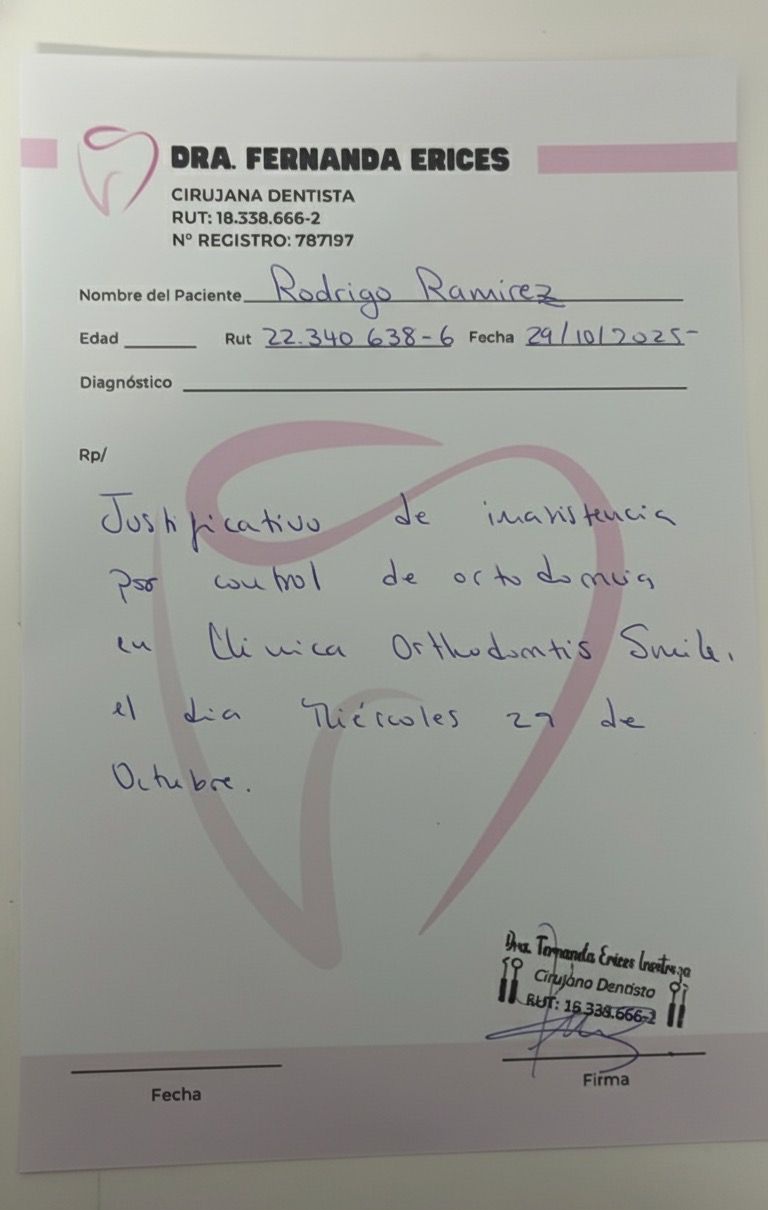 DRA. FERNANDA ERICES
CIRUJANA DENTISTA
RUT: 18.338.666-2
Nº REGISTRO: 787197
Nombre del Paciente Rodrigo Ramirez
Edad Rut 22.340 638-6 Fecha 29/10/2025
Diagnóstico
Rp/
Justificativo de inasistencia
por control de ortodoncia
en Clinica Orthodontis Smile.
el dia Miércoles 29 de
Octubre.
Dra. Fernanda Erices
Cirujano Dentista
RUT: 16.338.666-2
Fecha
Firma